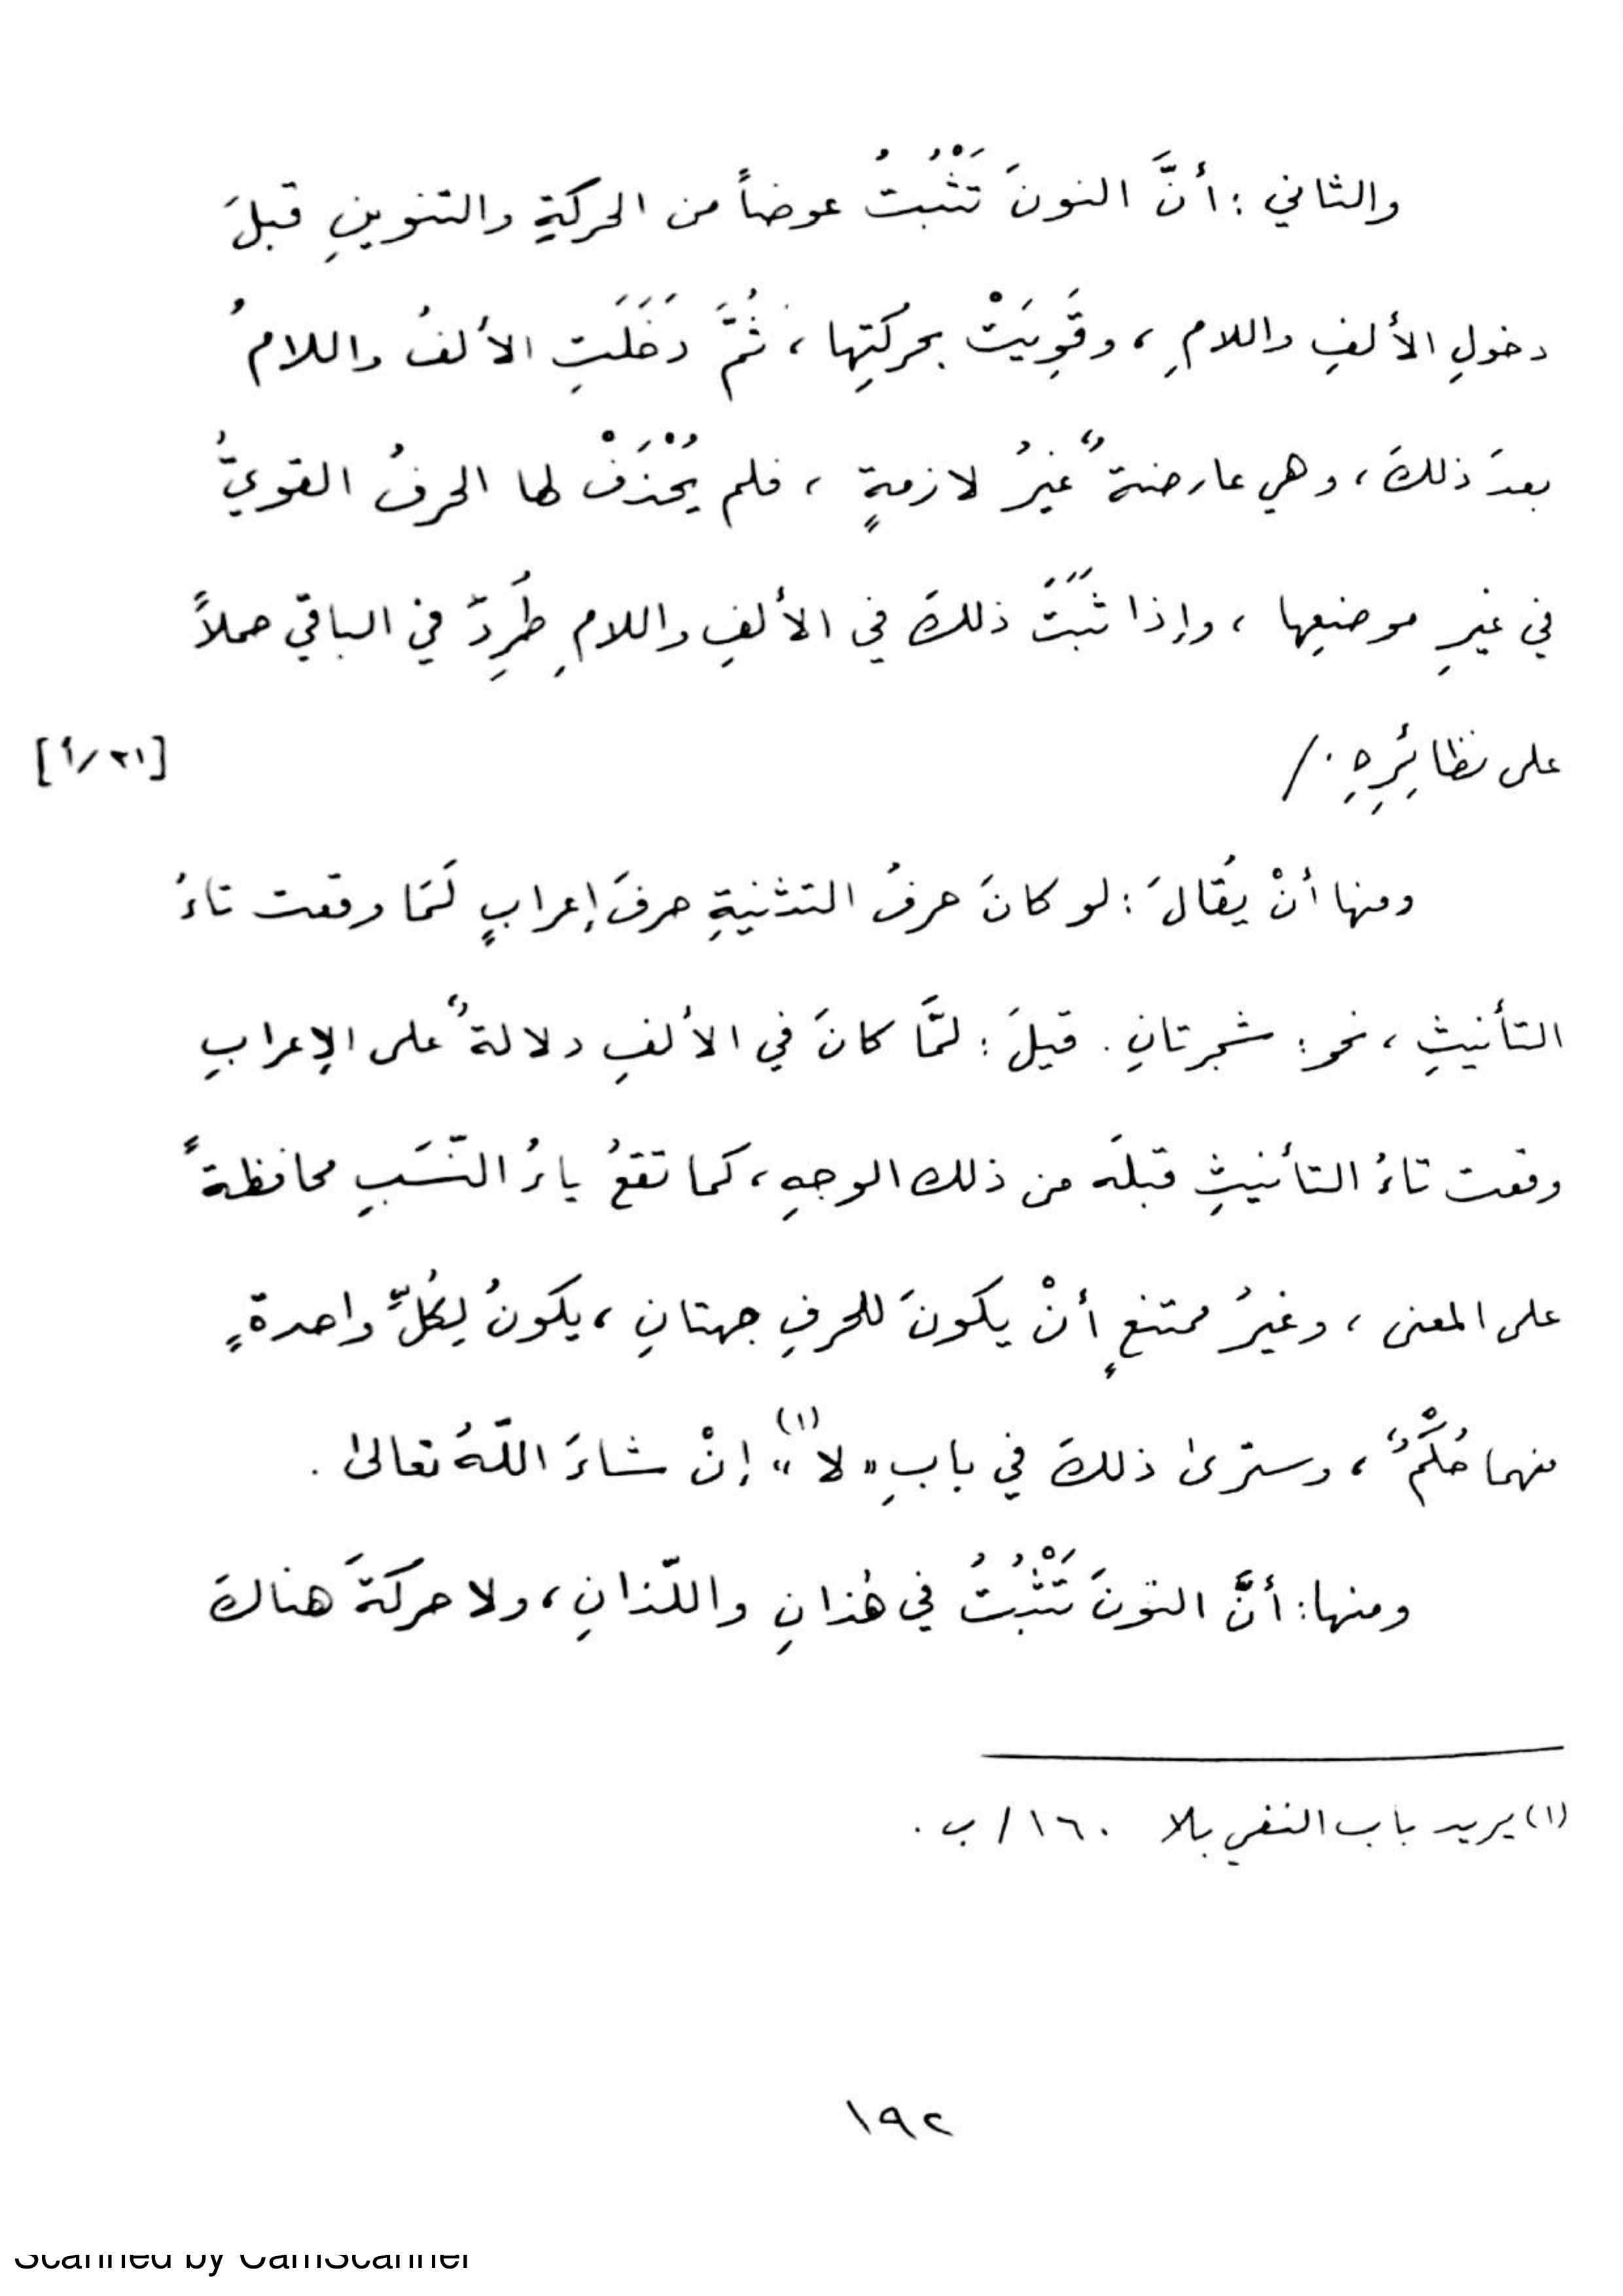 والثاني : أنَّ النونَ تَثْبُتُ عوضاً من الحركةِ والتنوينِ قبلَ
دخولِ الألفِ واللامِ ، وقَوِيَتْ بحركتِها ، ثُمَّ دَخَلَتِ الألفُ واللامُ
بعدَ ذلكَ ، وهي عارضةٌ غيرُ لازمةٍ ، فلم يُحْذَفْ لها الحرفُ القويُّ
في غيرِ موضعِها ، وإذا ثَبَتَ ذلكَ في الألفِ واللامِ طُرِدَ في الباقي حملاً
على نظائِرِهِ . / [٢١/أ]
ومنها أنْ يُقالَ : لو كانَ حرفُ التثنيةِ حرفَ إعرابٍ لَمَا وقعت تاءُ
التأنيثِ ، نحو : شجرتانِ . قيلَ : لمَّا كانَ في الألفِ دلالةٌ على الإعرابِ
وقعت تاءُ التأنيثِ قبلَه من ذلك الوجهِ ، كما تقعُ ياءُ النَّسَبِ محافظةً
على المعنى ، وغيرُ ممتنعٍ أنْ يكونَ للحرفِ جهتانِ ، يكونُ لِكُلِّ واحدةٍ
منهما حُكْمٌ ، وسترىٰ ذلكَ في بابِ « لا »(١) إنْ شاءَ اللّهُ تعالىٰ .
ومنها : أنَّ النّونَ تَثْبُتُ في هٰذانِ واللّذانِ ، ولا حركةَ هناكَ
(١) يريد باب النفي بلا ١٦٠ / ب .
١٩٢
Scanned by CamScanner